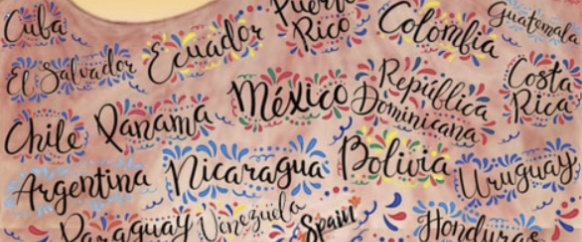 Cuba
Puerto
Rico
Colombia
Guatemala
El Salvador
Ecuador
México
República
Dominicana
Costa
Rica
Chile
Panama
Argentina
Nicaragua
Bolivia
Uruguay
Paraguay
Venezuela
Spain
Honduras